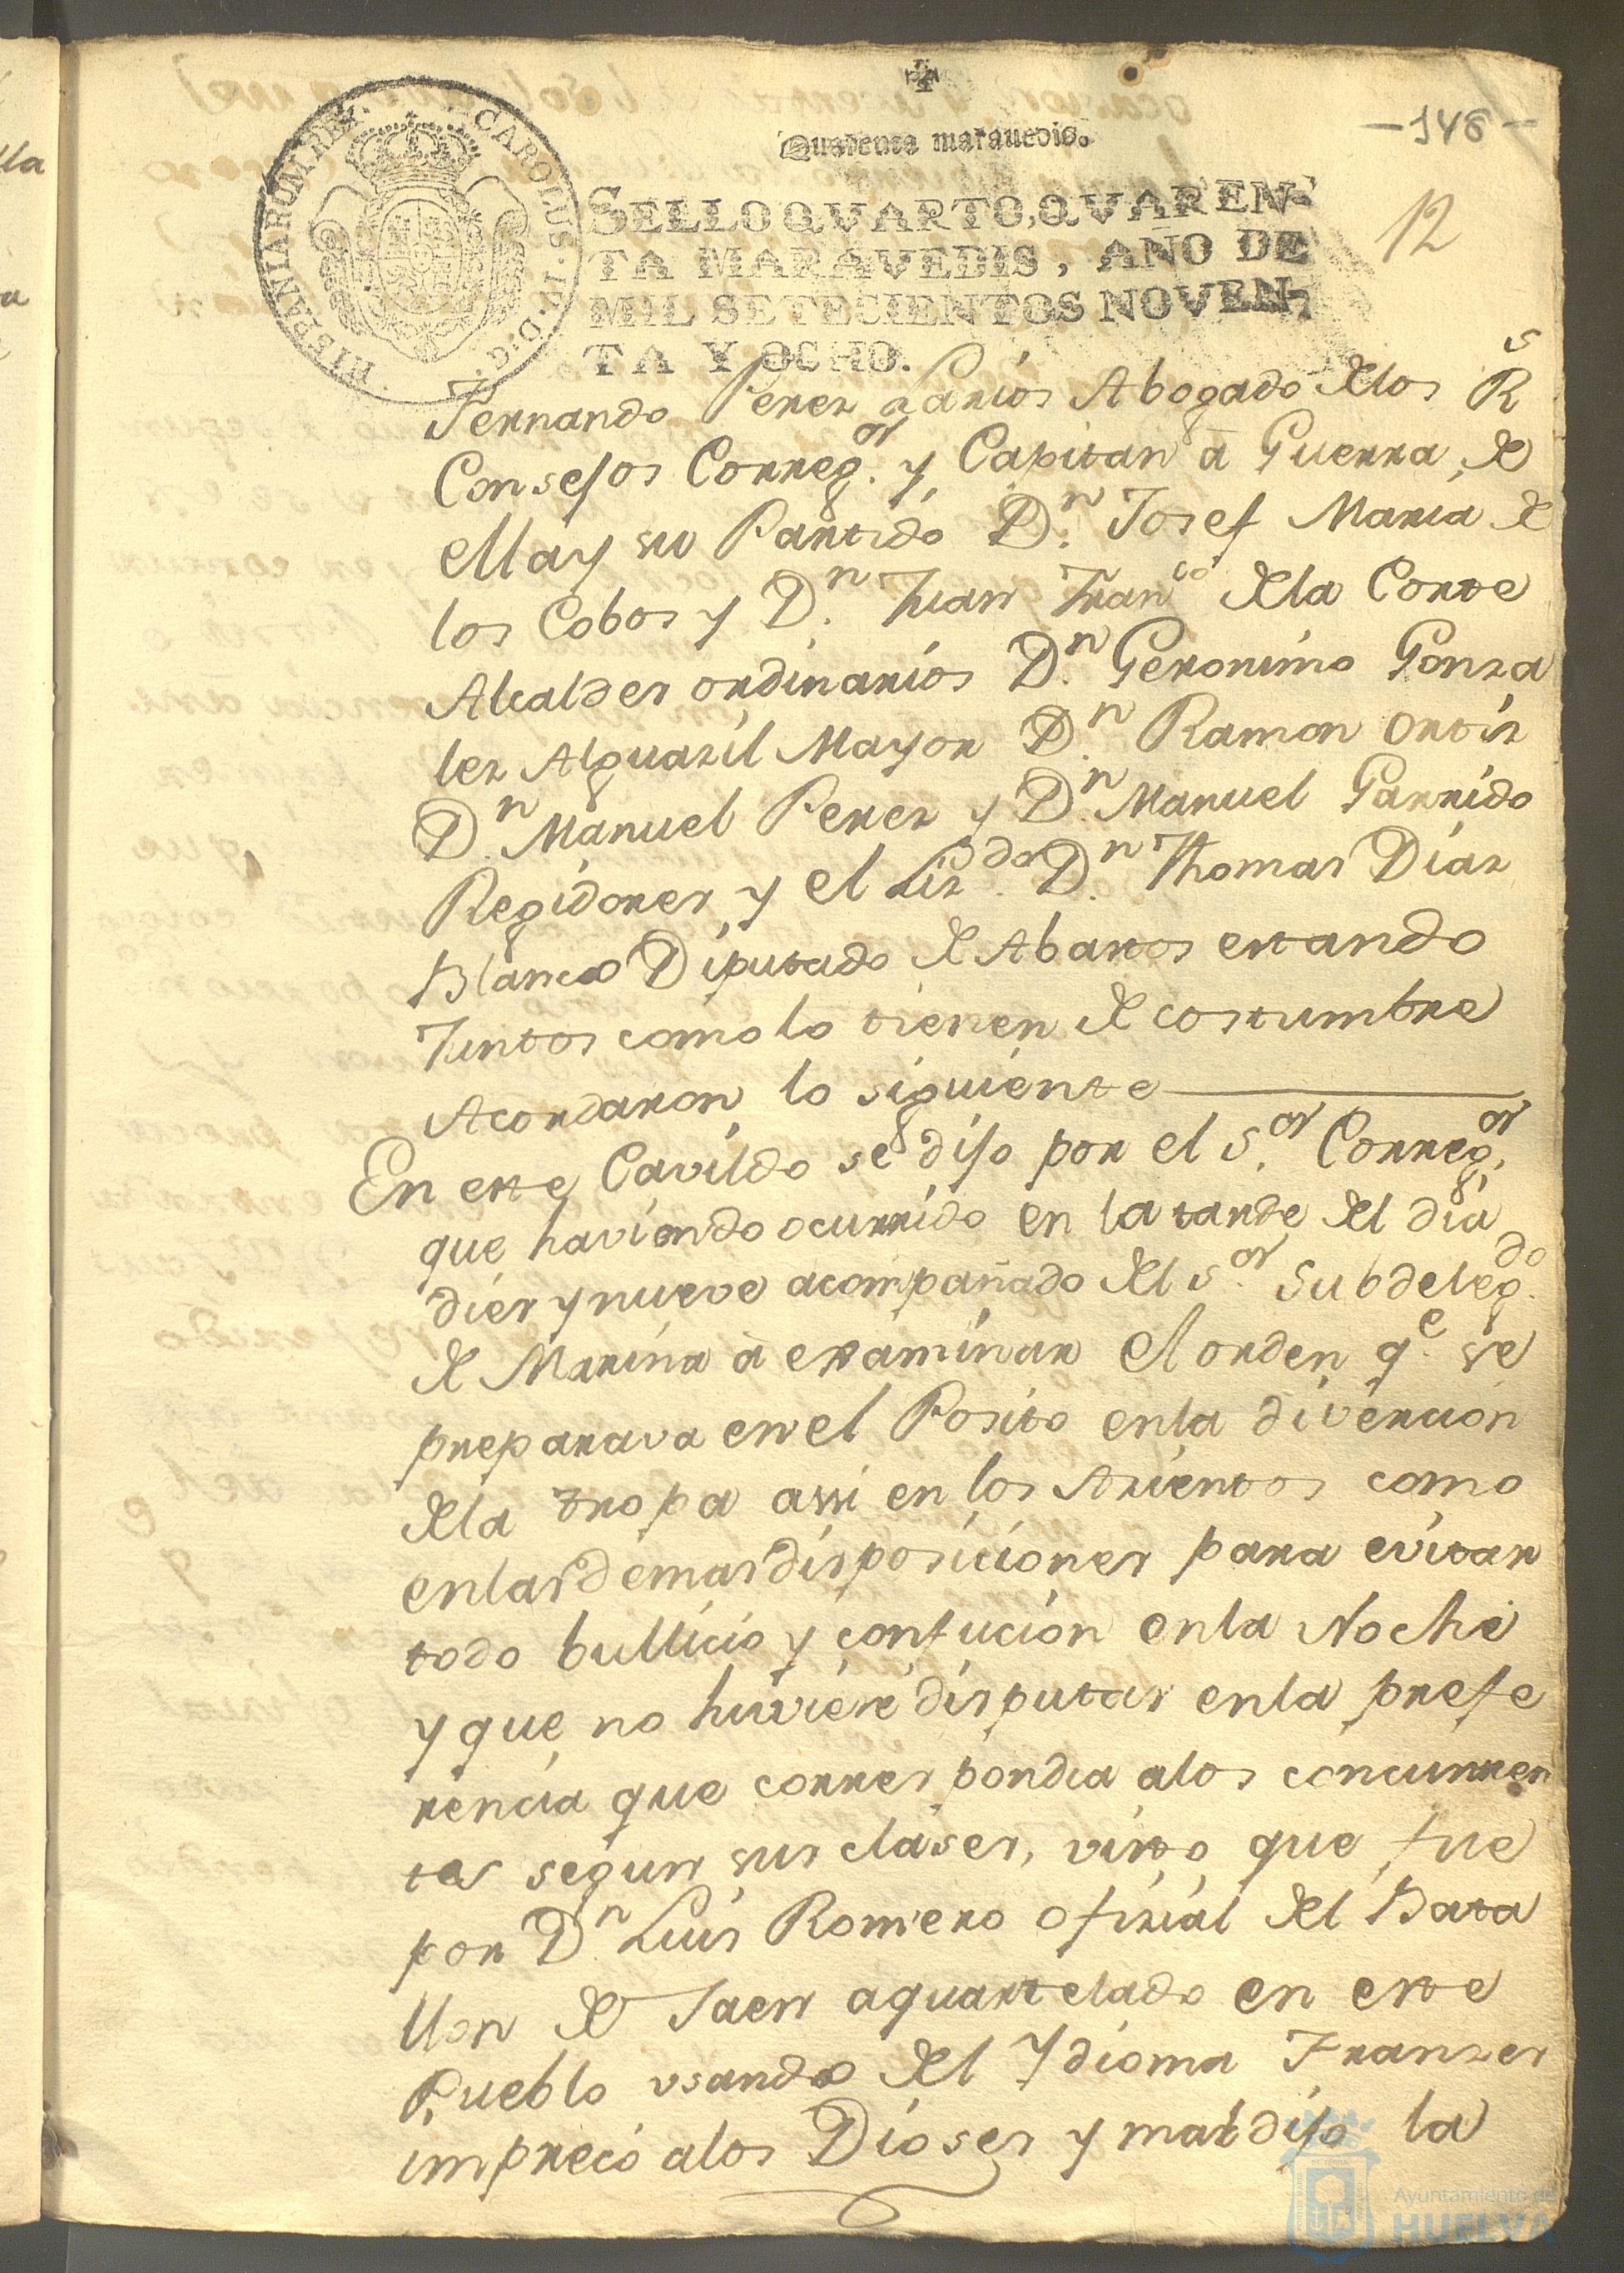 Quarenta marauedis.
-148-
12
CAROLUS·IV·D·G· HISPANIARUM·REX·
SELLO QVARTO, QVAREN-
TA MARAVEDIS, AÑO DE
MIL SETECIENTOS NOVEN-
TA Y OCHO.
Fernando Perez Larios Abogado delos Rs
Consejos Correg.or y Capitan à Guerra, de
ella y su Partido D.n Josef Maria de
los Cobos y D.n Juan Franco dela Corte
Alcaldes ordinarios D.n Geronimo Gonza
lez Alguazil Mayor D.n Ramon Ortiz
D.n Manuel Perez y D.n Manuel Garrido
Regidores y el Liz.do D.n Thomas Diaz
Blanco Diputado de Abastos estando
Juntos como lo tienen de costumbre
Acordaron lo siguiente
En este Cavildo se dijo por el S.or Correg.or
que haviendo ocurrido en la tarde del dia
diez y nueve acompañado del S.or Subdeleg.do
de Marina à examinar el orden q.e se
preparava en el Posito enla divercion
dela tropa assi en los Asientos como
enlas demas disposiciones para evitar
todo bullicio y confucion enla Noche
y que no huviere disputas enla prefe
rencia que correspondia alos concurren
tes segun sus clases, visto que fue
por D.n Luis Romero ofizial del Bata
llon de Jaen aquartelado en este
Pueblo usando del Ydioma Franzes
imprecó alos Dioses y maldijo la
Ayuntamiento de
HUELVA